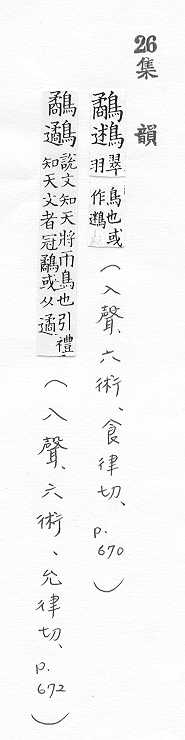 26
集韻
鷸鶐翠羽鳥也或作鶐(入聲、六術、食律切、p.670)
鷸說文知天將雨鳥也引禮知天文者冠鷸或从遹(入聲、六術、允律切、p.672)